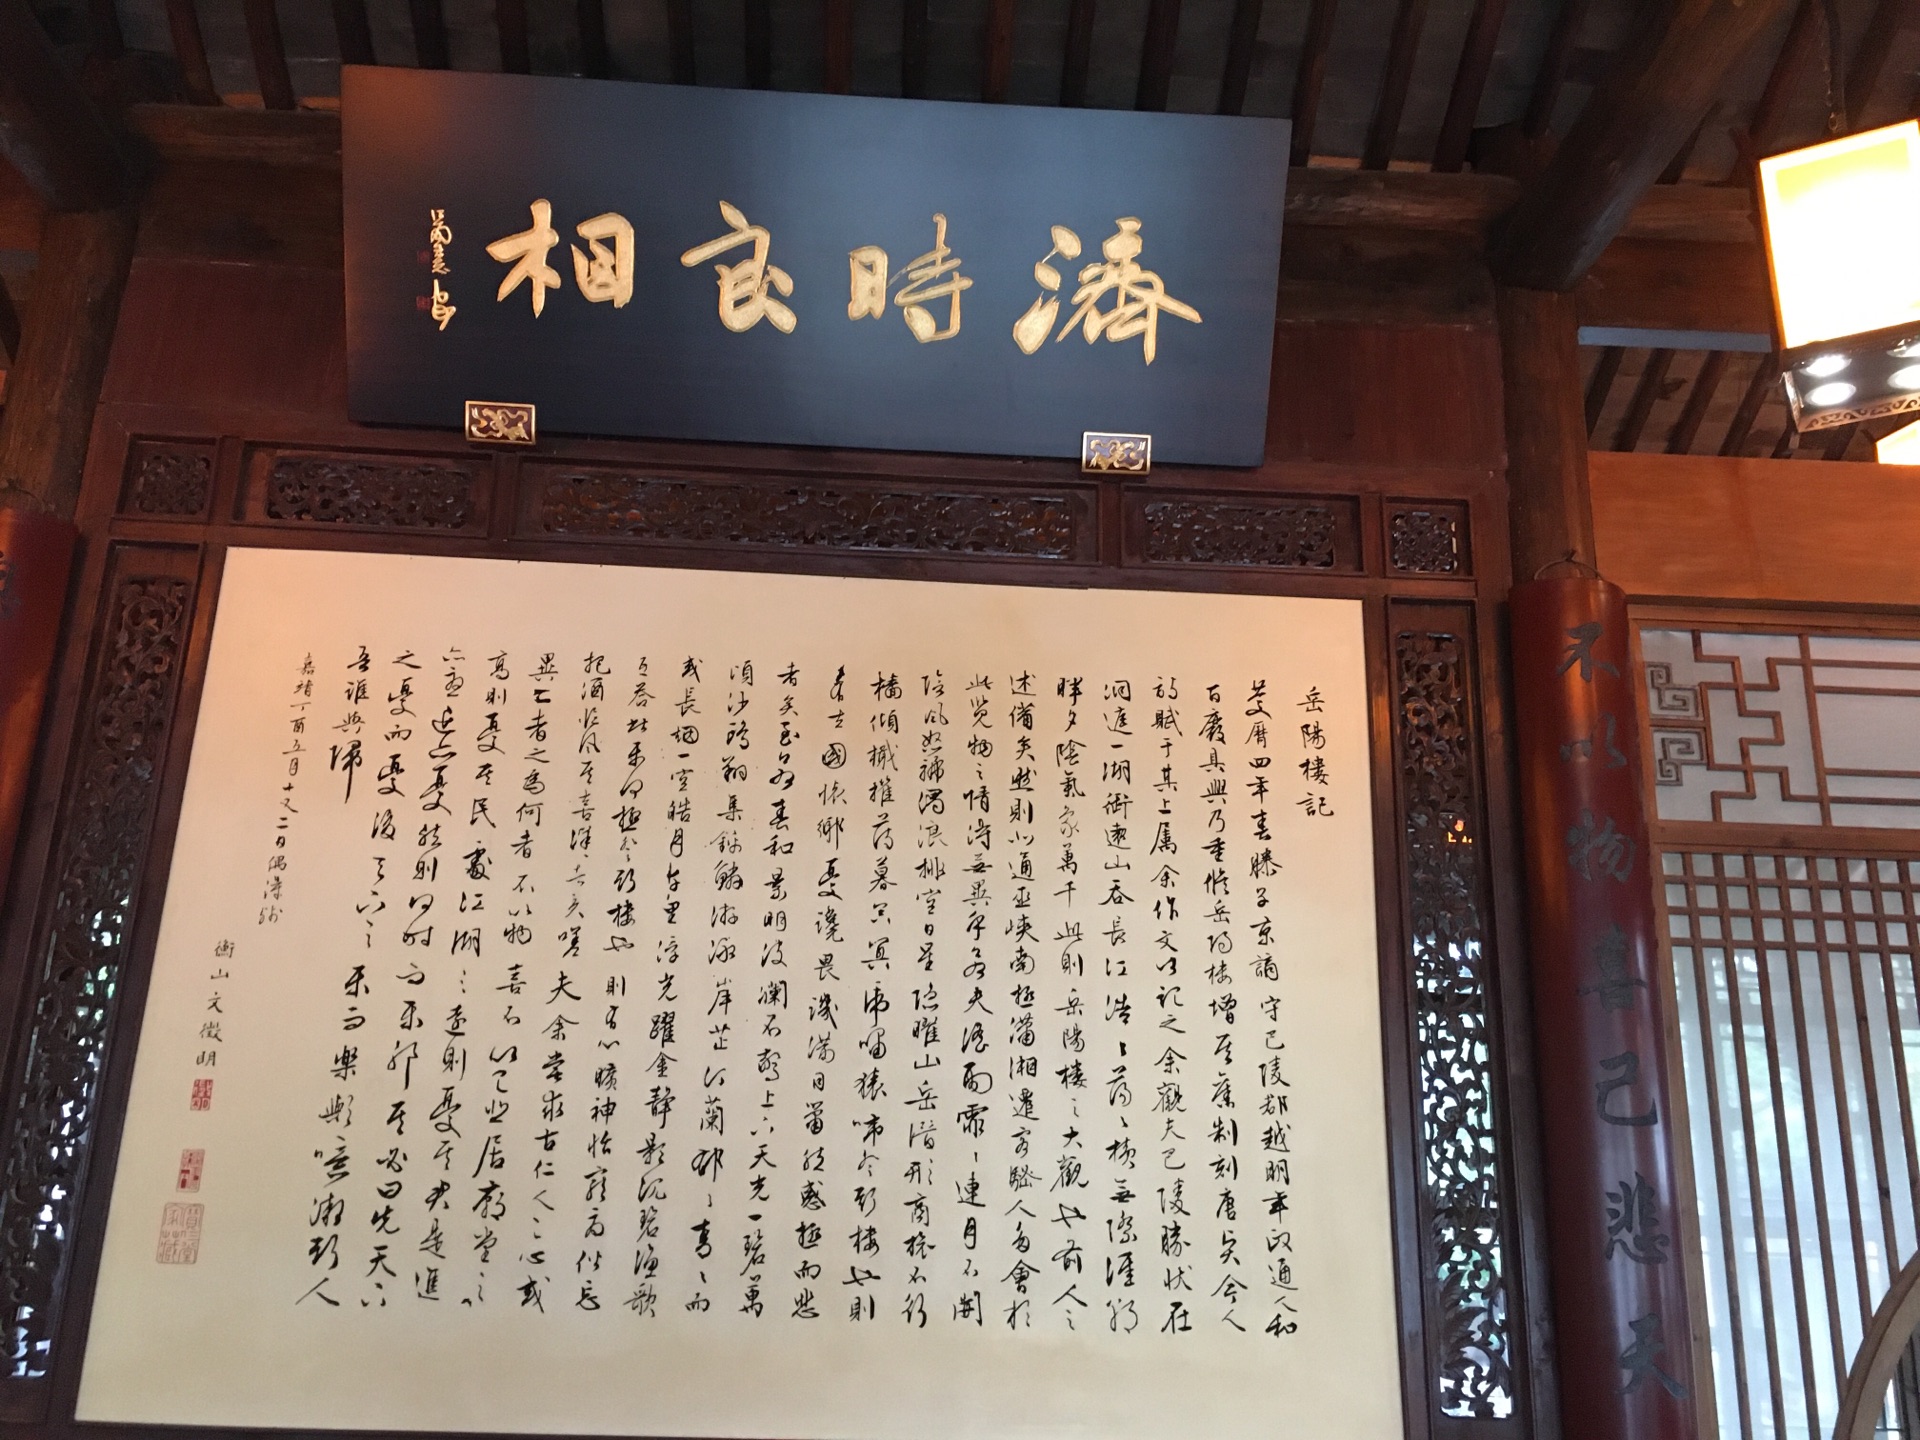 濟時良相
岳陽樓記
慶曆四年春滕子京謫守巴陵郡越明年政通人和
百廢具興乃重修岳陽樓增其舊制刻唐賢今人
詩賦于其上屬余作文以記之余觀夫巴陵勝狀在
洞庭一湖銜遠山吞長江浩浩蕩蕩橫無際涯朝
暉夕陰氣象萬千此則岳陽樓之大觀也前人之
述備矣然則北通巫峽南極瀟湘遷客騷人多會於
此覽物之情得無異乎若夫淫雨霏霏連月不開
陰風怒號濁浪排空日星隱曜山岳潛形商旅不行
檣傾檝摧薄暮冥冥虎嘯猿啼登斯樓也則
有去國懷鄉憂讒畏譏滿目蕭然感極而悲
者矣至若春和景明波瀾不驚上下天光一碧萬
頃沙鷗翔集錦鱗游泳岸芷汀蘭郁郁青青而
或長烟一空皓月千里浮光躍金靜影沉碧漁歌
互答此樂何極登斯樓也則有心曠神怡寵辱偕忘
把酒臨風其喜洋洋者矣嗟夫余嘗求古仁人之心或
異二者之為何者不以物喜不以己悲居廟堂之
高則憂其民處江湖之遠則憂其君是進
亦憂退亦憂然則何時而樂耶其必曰先天下
之憂而憂後天下之樂而樂歟噫微斯人
吾誰與歸
嘉靖丁酉五月十又二日偶漫
衡山文徵明
不以物喜己悲天